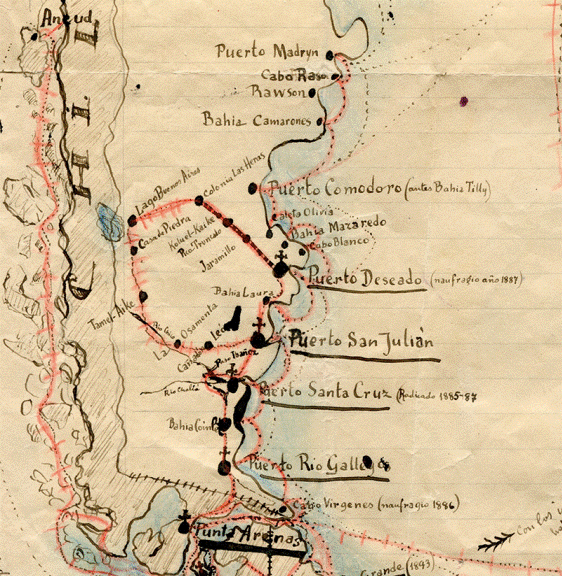 Ancud
CHIL
Puerto Madryn
Cabo Raso
Rawson
Bahia Camarones
Colonia Las Heras
Lago Buenos Aires
Puerto Comodoro (antes Bahia Tilly)
Casa de Piedra
Caleta Olivia
Bahia Mazaredo
Cabo Blanco
Jaramillo
Puerto Deseado (naufragio año 1887)
Bahia Laura
Tamel-Aike
Osamenta
León
Puerto San Julián
Paso Ibañez
Puerto Santa Cruz (Radicado 1885-87
Bahia Coint
Puerto Rio Gallegos
Cabo Virgenes (naufragio 1886)
Punta Arenas
con los
Grande (1893)